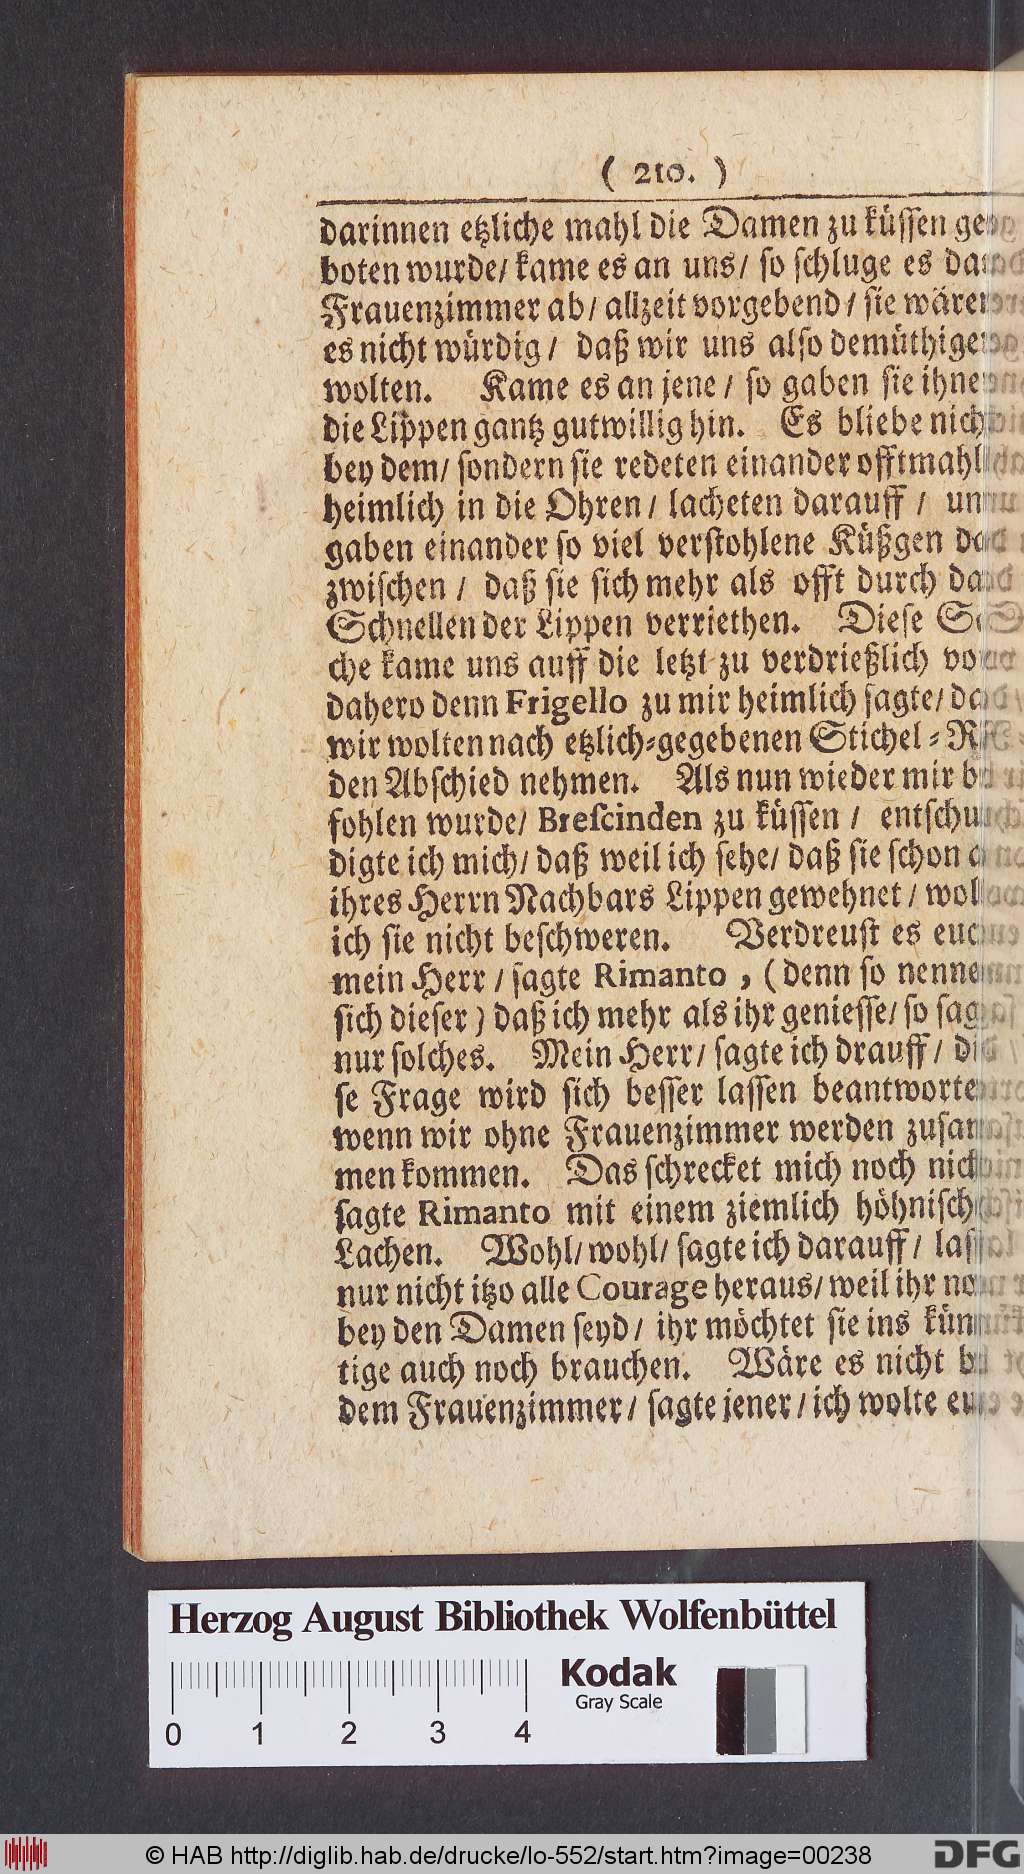 ( 210. )
darinnen etzliche mahl die Damen zu küſſen ge-
boten wurde/ kame es an uns/ ſo ſchluge es
Frauenzimmer ab/ allzeit vorgebend/ ſie wären
es nicht würdig/ daß wir uns alſo demüthigen
wolten. Kame es an jene/ ſo gaben ſie ihnen
die Lippen gantz gutwillig hin. Es bliebe nicht
bey dem/ ſondern ſie redeten einander offtmahl
heimlich in die Ohren/ lacheten darauff/ und
gaben einander ſo viel verſtohlene Küßgen da-
zwiſchen/ daß ſie ſich mehr als offt durch das
Schnellen der Lippen verriethen. Dieſe Sa-
che kame uns auff die letzt zu verdrießlich vor
dahero denn Frigello zu mir heimlich ſagte/ daß
wir wolten nach etzlich-gegebenen Stichel-Re-
den Abſchied nehmen. Als nun wieder mir be-
fohlen wurde/ Breſcinden zu küſſen/ entſchul-
digte ich mich/ daß weil ich ſehe/ daß ſie ſchon an
ihres Herrn Nachbars Lippen gewehnet/ wolte
ich ſie nicht beſchweren. Verdreuſt es euch
mein Herr/ ſagte Rimanto, (denn ſo nennete
ſich dieſer) daß ich mehr als ihr genieſſe/ ſo ſagt
nur ſolches. Mein Herr/ ſagte ich drauff/ die-
ſe Frage wird ſich beſſer laſſen beantworten
wenn wir ohne Frauenzimmer werden zuſam-
men kommen. Das ſchrecket mich noch nicht
ſagte Rimanto mit einem ziemlich höhniſchen
Lachen. Wohl/ wohl/ ſagte ich darauff/ laſſt
nur nicht itzo alle Courage heraus/ weil ihr noch
bey den Damen ſeyd/ ihr möchtet ſie ins künff-
tige auch noch brauchen. Wäre es nicht bey
dem Frauenzimmer/ ſagte jener/ ich wolte euch
Herzog August Bibliothek Wolfenbüttel
Kodak
Gray Scale
0 1 2 3 4
© HAB http://diglib.hab.de/drucke/lo-552/start.htm?image=00238
DFG